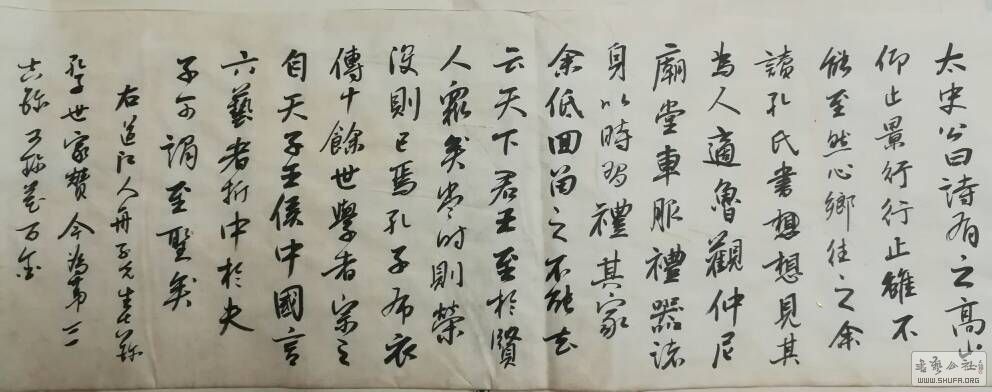 太史公曰詩有之高山
仰止景行行止雖不
能至然心鄉往之余
讀孔氏書想想見其
為人適魯觀仲尼
廟堂車服禮器諸
身以時習禮其家
余低回留之不能去
云天下君王至於賢
人眾矣當時則榮
沒則已焉孔子布衣
傳十餘世學者宗之
自天子王侯中國言
六藝者折中於夫
子可謂至聖矣
右江人舟子先生
孔子世家贊今為第三
WWW.SHUFA.ORG